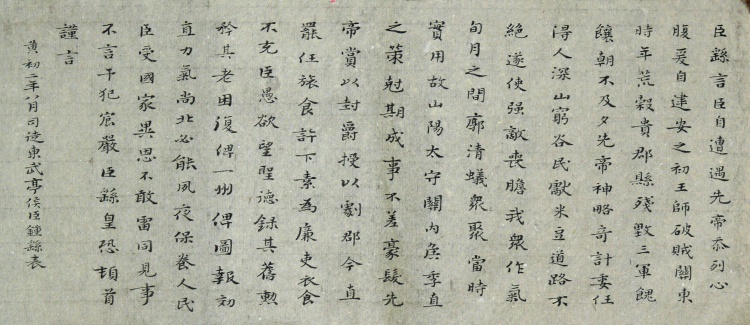 臣繇言臣自遭遇先帝忝列心
腹爰自建安之初王師破賊關東
時年荒穀貴郡縣殘毀三軍餽
饟朝不及夕先帝神略奇計委任
得人深山窮谷民獻米豆道路不
絕遂使强敵喪膽我衆作氣
旬月之間廓清蟻衆聚當時
實用故山陽太守關內侯季直
之策剋期成事不差豪髮先
帝賞以封爵授以劇郡今直
罷任旅食許下素爲廉吏衣食
不充臣愚欲望聖德錄其舊勳
矜其老困復俾一州俾圖報効
直力氣尚壯必能夙夜保養人民
臣受國家異恩不敢雷同見事
不言干犯宸嚴臣繇皇恐頓首
謹言
黃初二年八月司徒東武亭侯臣鍾繇表